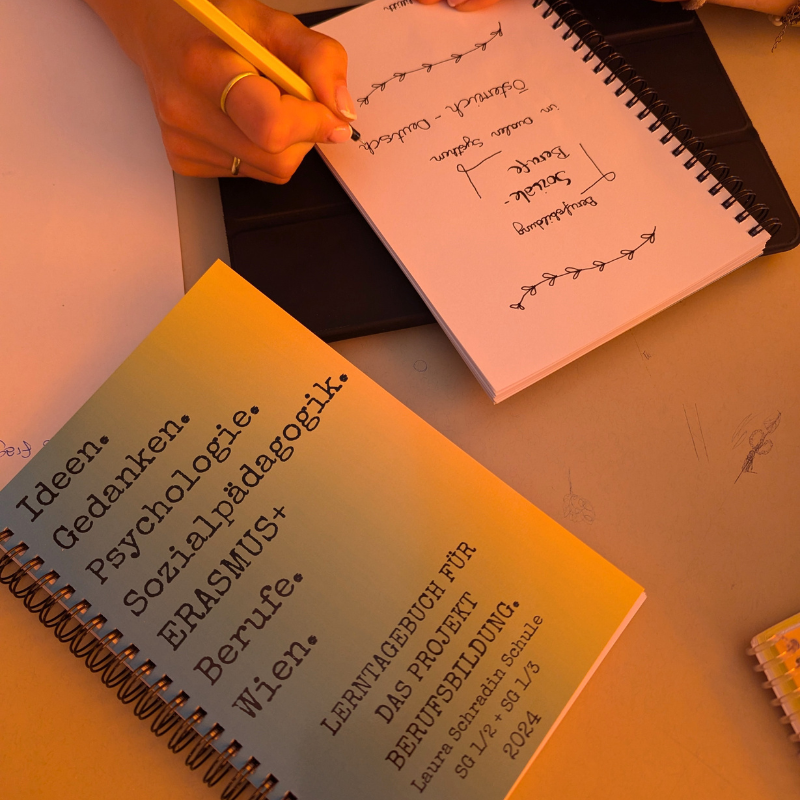 Ideen.
Gedanken.
Psychologie.
Sozialpädagogik.
ERASMUS+
Berufe.
Wien.
LERNTAGEBUCH FÜR
DAS PROJEKT
BERUFSBILDUNG.
Laura Schradin Schule
SG 1/2 + SG 1/3
2024
Berufsbildung
Soziale-
Berufe
in Dualen System
Österreich - Deutsch